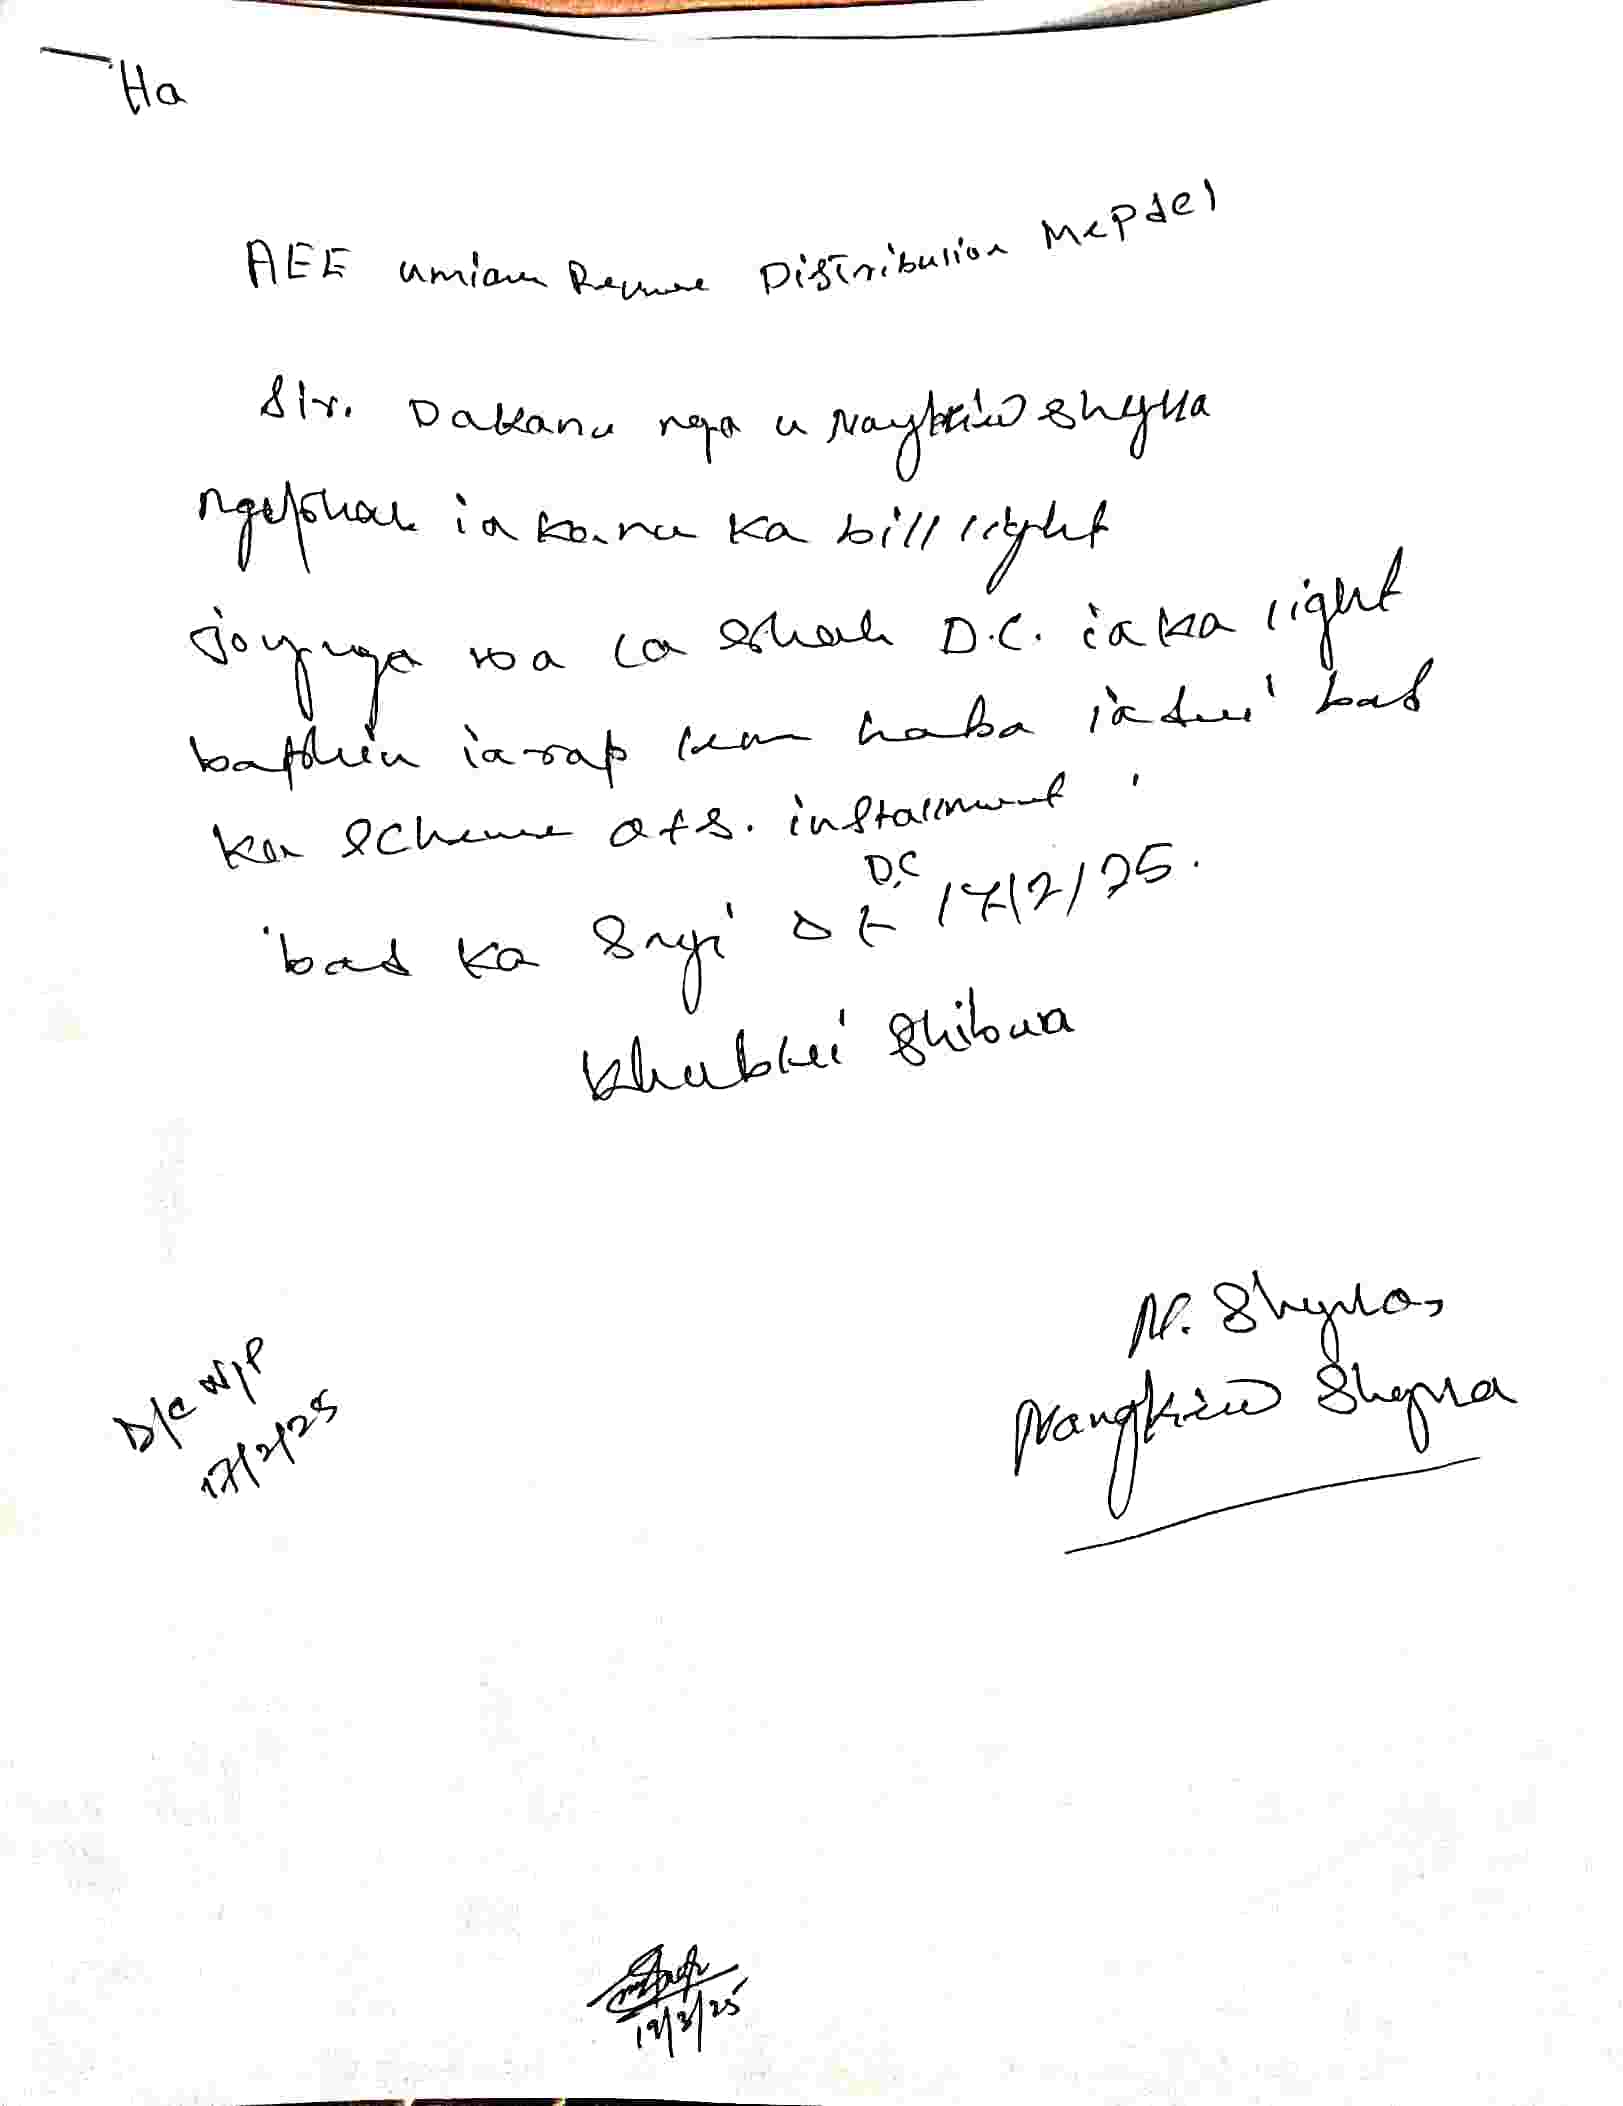 Ha
AEE umiam Revenue Distribution MePdcl
Sir. Dakanu nga u Nangkiew Shylla
ia kanu ka bill light
jongnga ba la shah D.C. ia ka light
baphin iarap lem haba iadei bad
ka Scheme ots. installment
D.C
bad ka Sngi Dt 17/2/25.
Khublei Shibun
N. Shylla
Nangkiew Shylla
D/C N/P
17/2/25
19/3/25